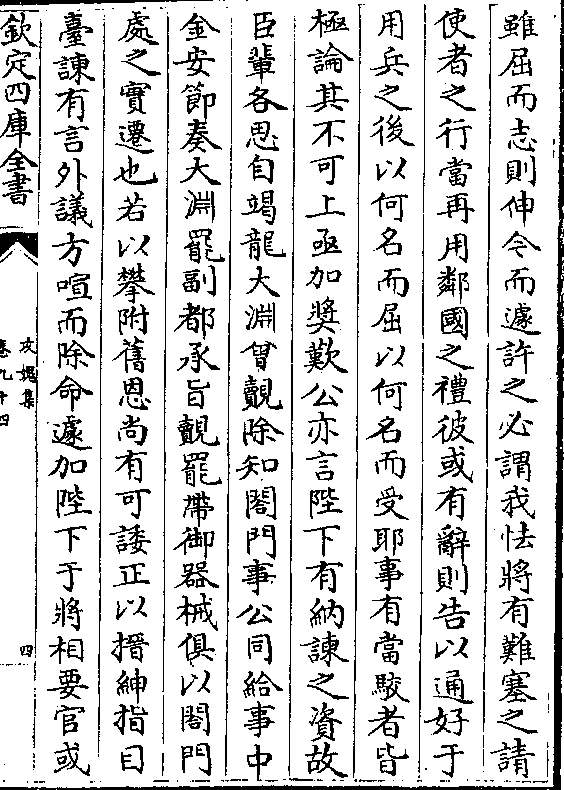 雖屈而志則伸今而遽許之必謂我怯將有難塞之請
使者之行當再用鄰國之禮彼或有辭則告以通好于
用兵之後以何名而屈以何名而受耶事有當駮者皆
極論其不可上亟加奨歎公亦言陛下有納諫之資故
臣輩各思自竭龍大淵曾覿除知閤門事公同給事中
金安節奏大淵罷副都承旨覿罷帶御器械俱以閤門
處之實遷也若以攀附舊恩尚有可諉正以搢紳指目
臺諫有言外議方喧而除命遽加陛下于將相要官或
欽定四庫全書
攻媿集
卷九十四
四